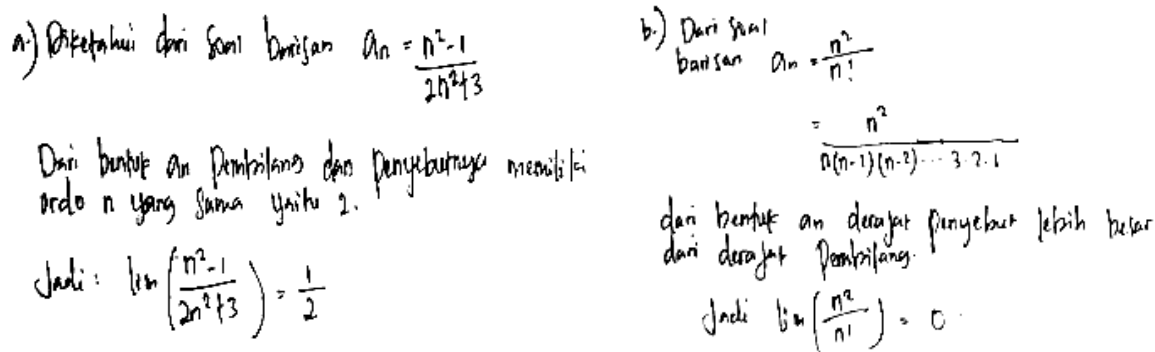 a.) Diketahui dari soal barisan an = n²-1 / 2n²+3
Dari bentuk an Pembilang dan penyebutnya memiliki
ordo n yang sama yaitu 2.
Jadi : lim (n²-1 / 2n²+3) = 1/2
b.) Dari soal
barisan an = n² / n!
= n² / n(n-1)(n-2)...3.2.1
dari bentuk an derajat penyebut lebih besar
dari derajat Pembilang.
Jadi lim (n² / n!) = 0.